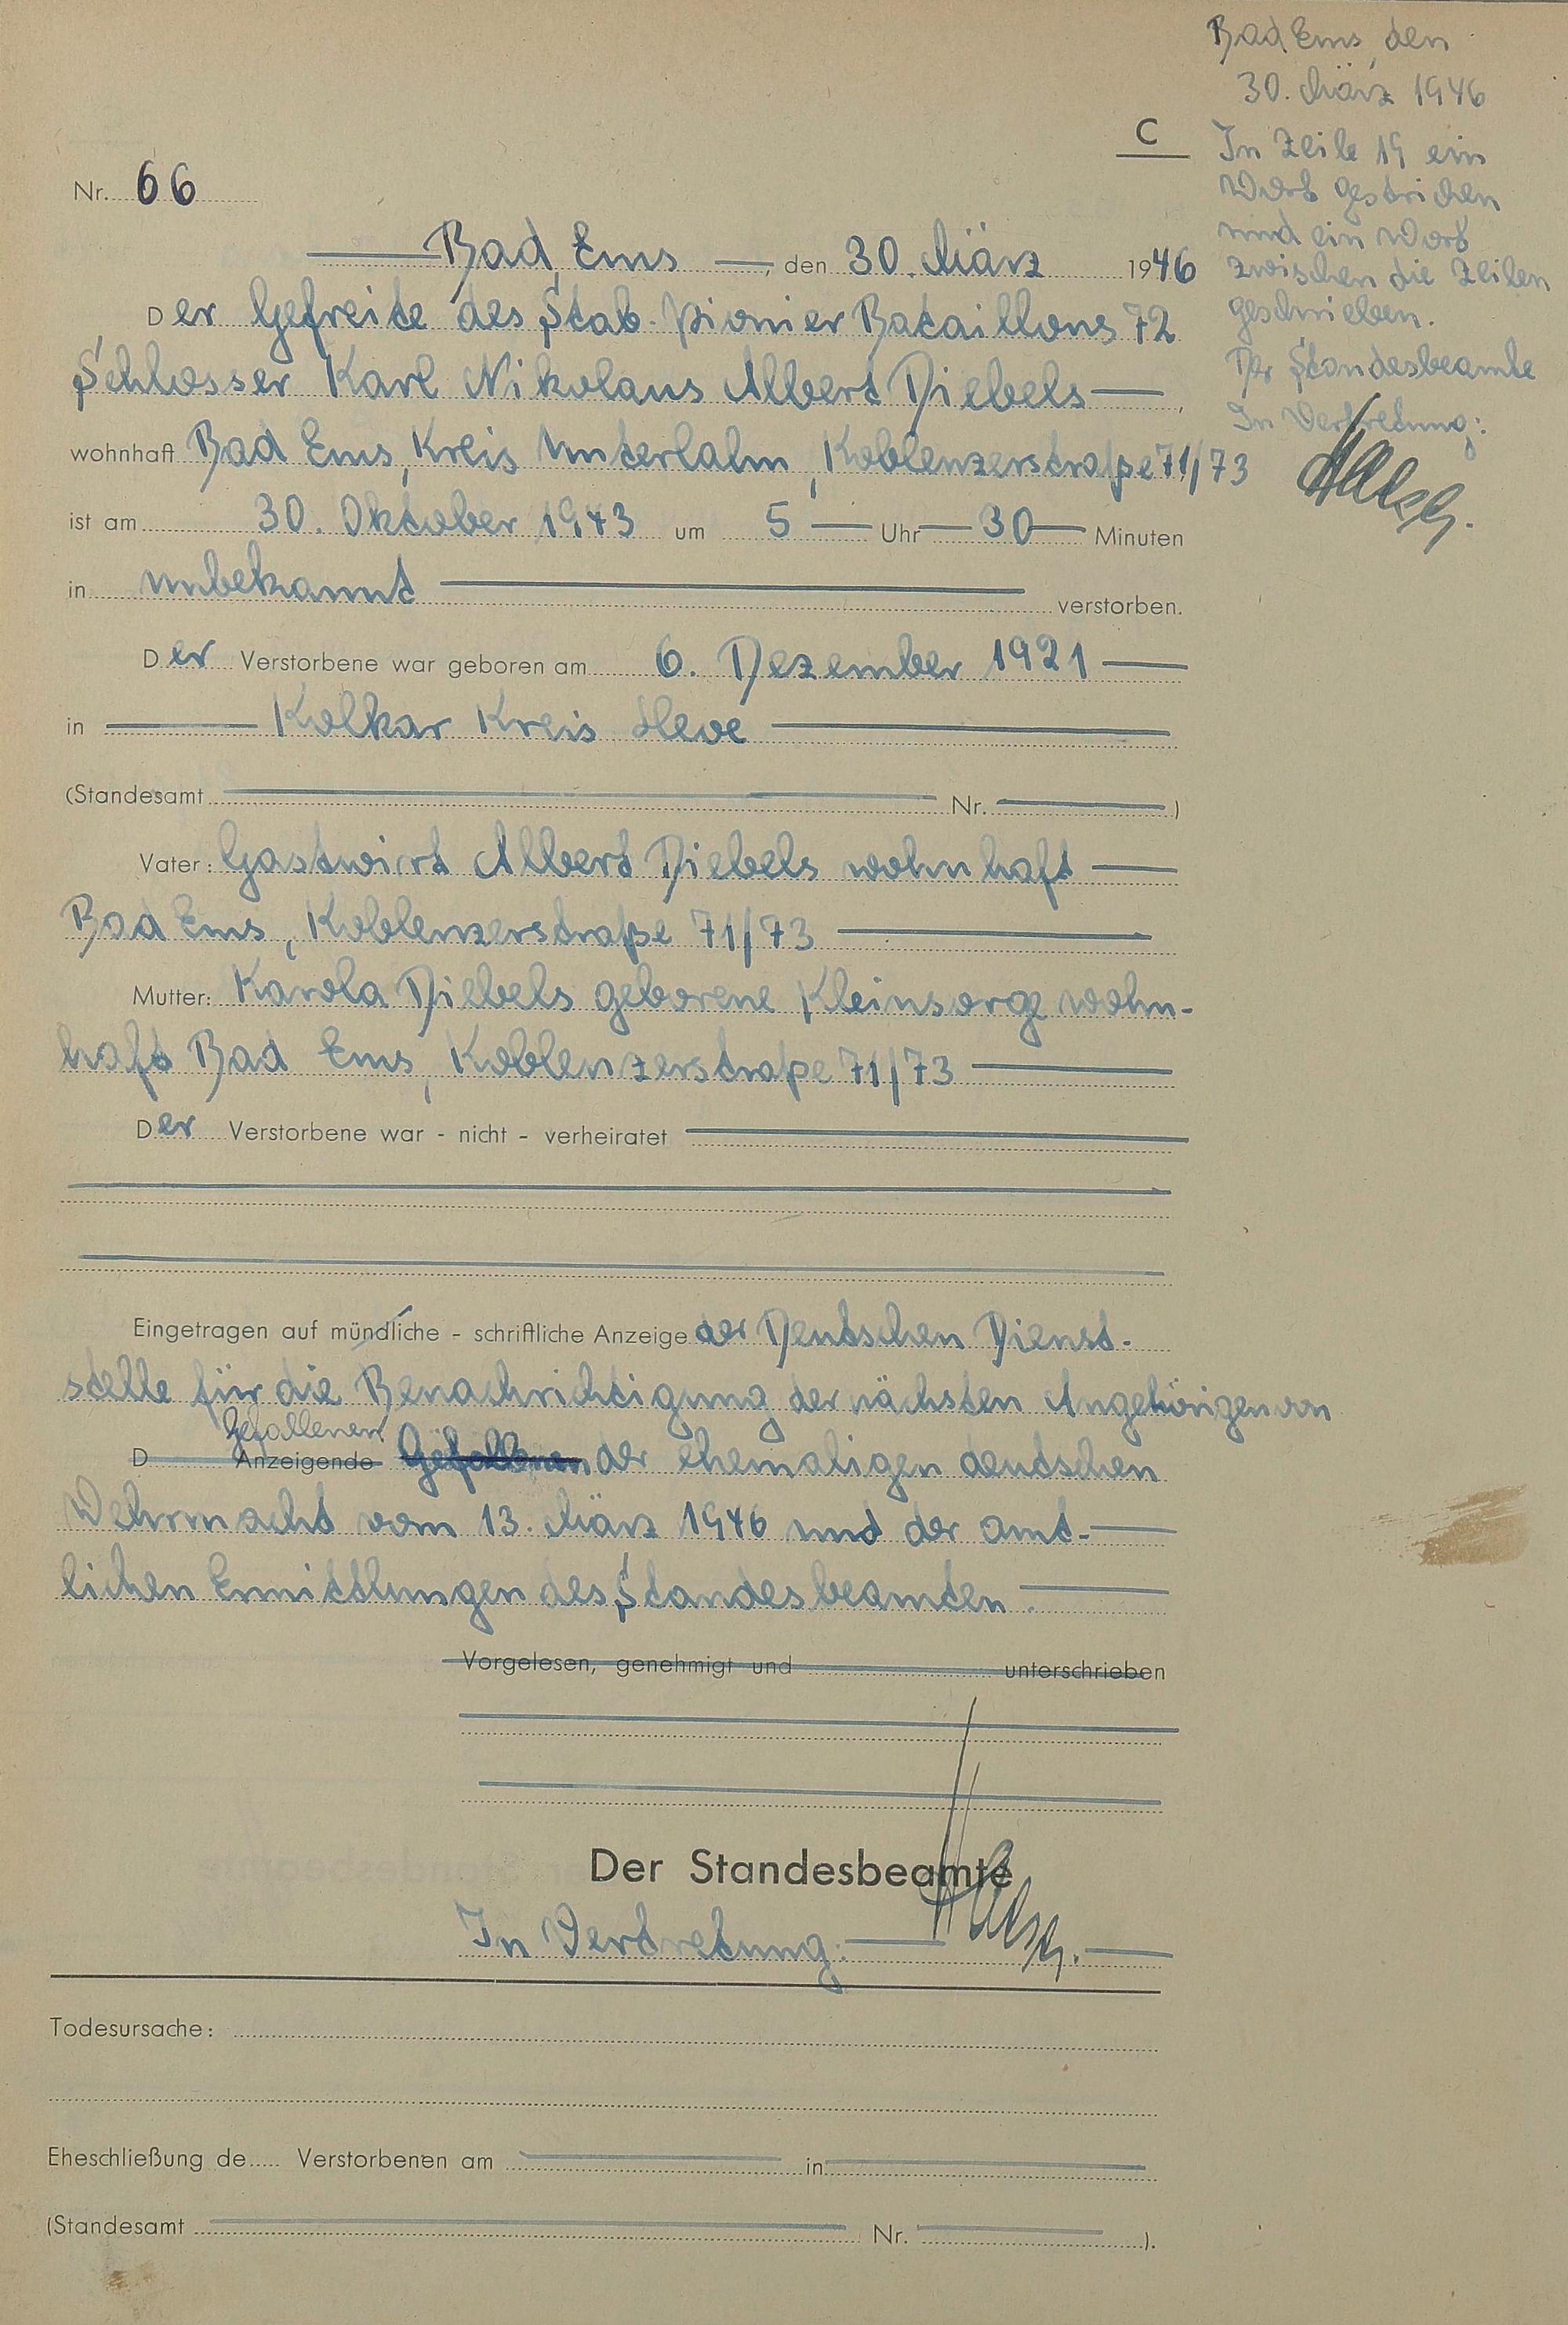 C
Nr. 66
Bad Ems, den 30. März 1946
Der Gefreite des Stab. Pionier Bataillons 72
Schlosser Karl Nikolaus Albert Diebels
wohnhaft Bad Ems, Kreis Unterlahn, Koblenzerstraße 71/73
ist am 30. Oktober 1943 um 5 Uhr 30 Minuten
in unbekannt verstorben.
Der Verstorbene war geboren am 6. Dezember 1921
in Kalkar Kreis Kleve
(Standesamt Nr. )
Vater: Gastwirt Albert Diebels wohnhaft
Bad Ems, Koblenzerstraße 71/73
Mutter: Karola Diebels geborene Kleinsorge wohn-
haft Bad Ems, Koblenzerstraße 71/73
Der Verstorbene war - nicht - verheiratet
Eingetragen auf mündliche - schriftliche Anzeige der Deutschen Dienst-
stelle für die Benachrichtigung der nächsten Angehörigen von
Gefallenen
D Anzeigende Gefallenen der ehemaligen deutschen
Wehrmacht vom 13. März 1946 und der amt-
lichen Ermittlungen des Standesbeamten.
Vorgelesen, genehmigt und unterschrieben
Der Standesbeamte
In Vertretung:
Todesursache:
Eheschließung de Verstorbenen am in
(Standesamt Nr. ).
Bad Ems, den
30. März 1946
In Zeile 19 ein
Wort gestrichen
und ein Wort
zwischen die Zeilen
geschrieben.
Der Standesbeamte
In Vertretung: